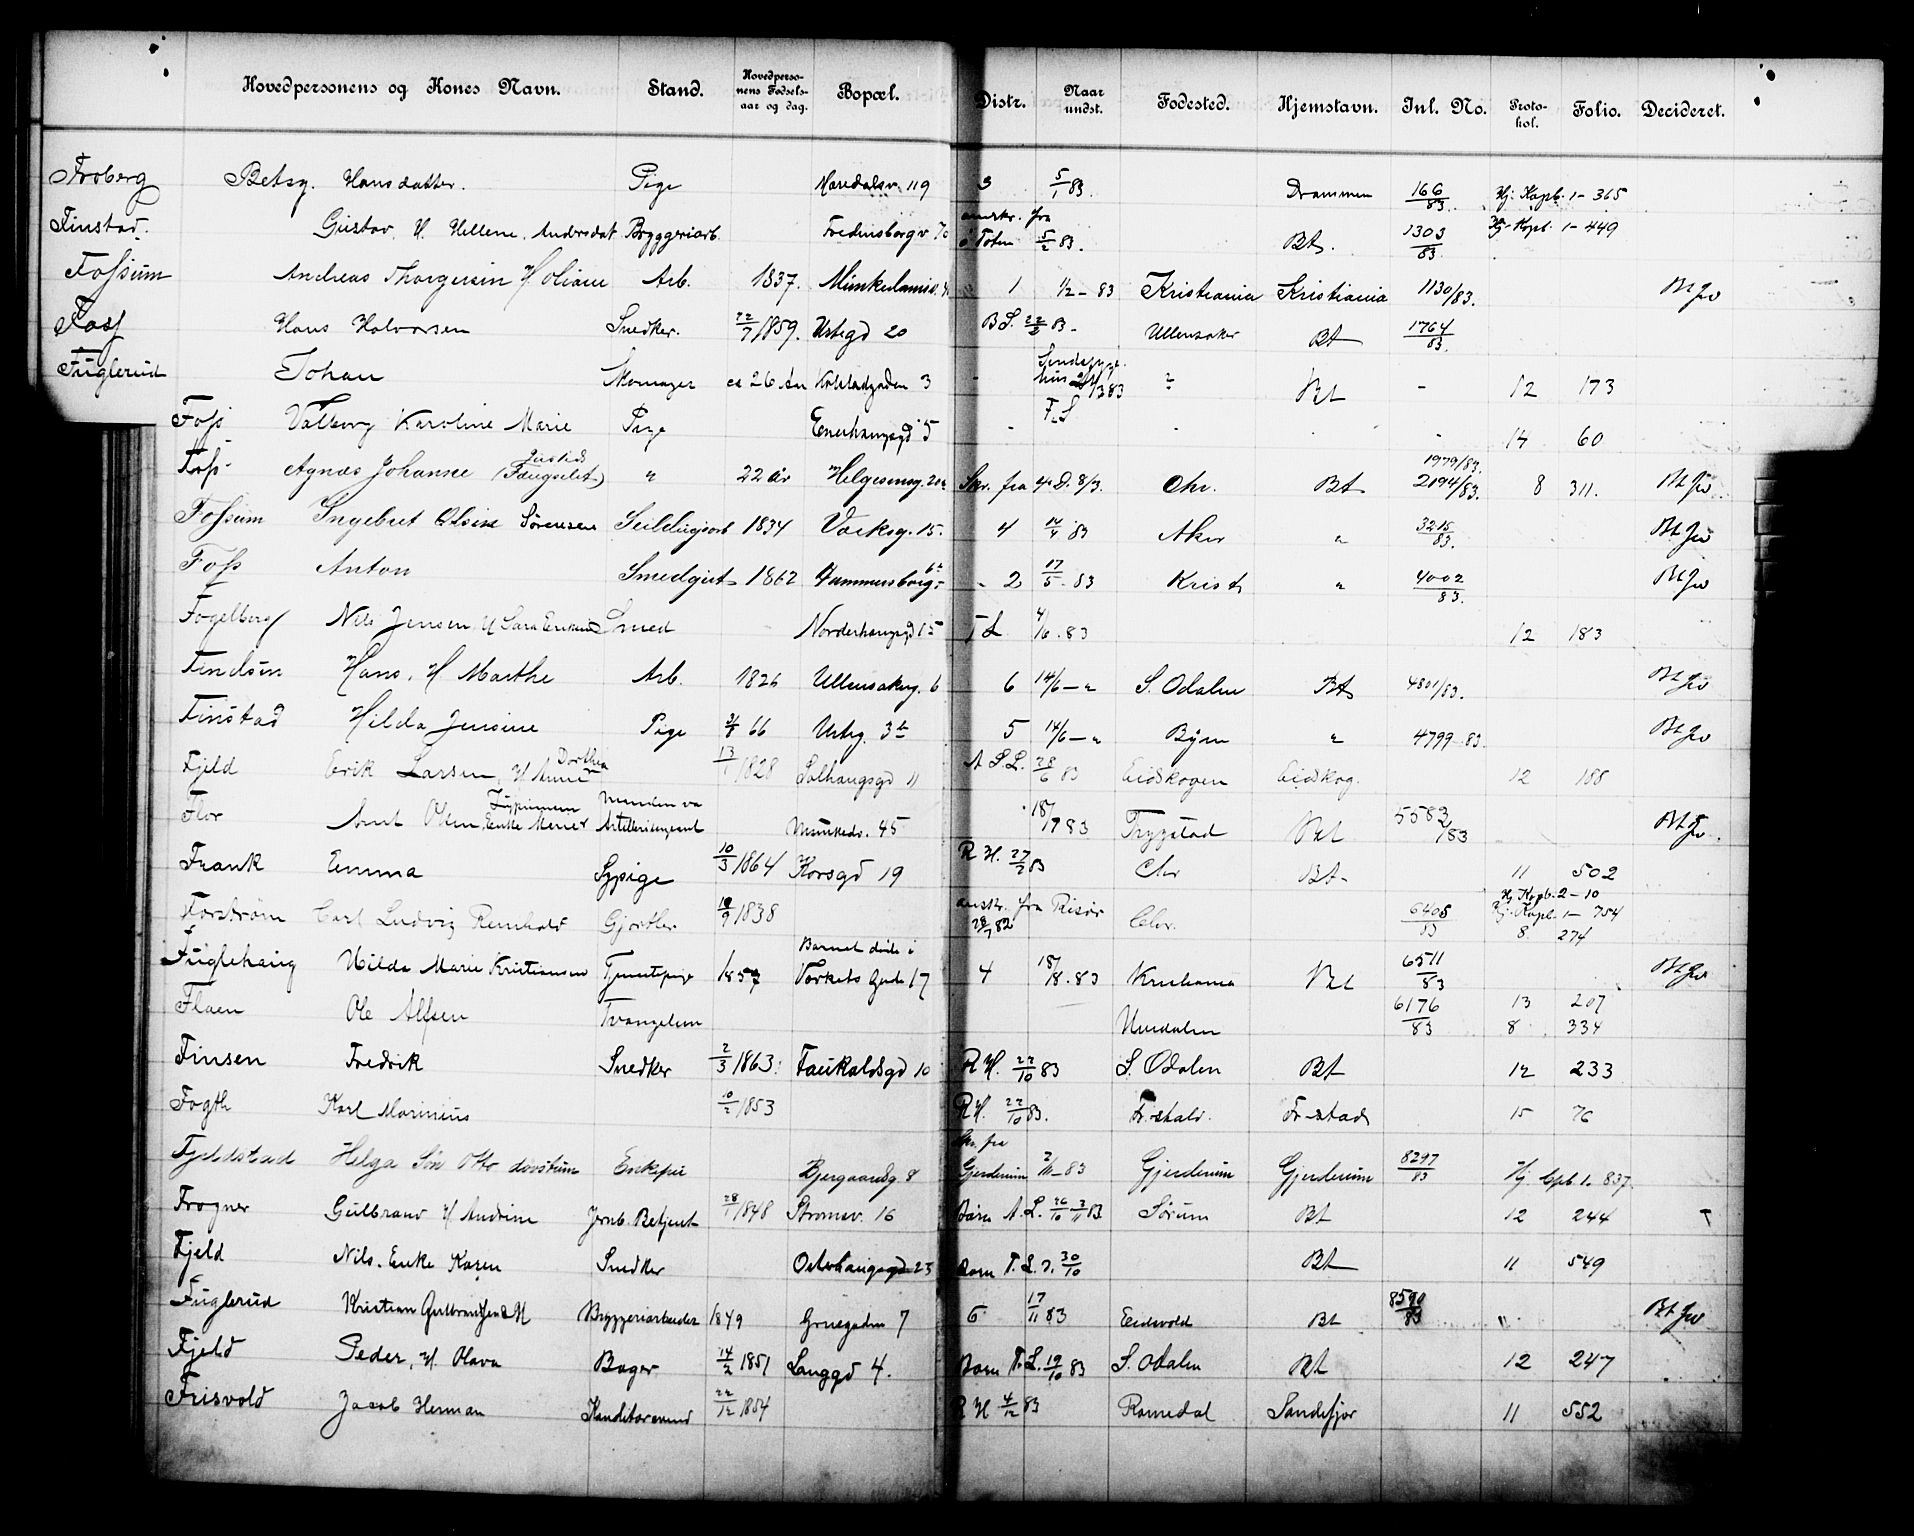 Hovedpersonens og Kones Navn. Stand. Hovedpersonens Fødselsaar og dag. Bopæl. Distr. Naar undst. Fødested. Hjemstavn. Inl. No. Protokol. Folio. Decideret.
Froberg Betsy Hansdatter. Pige Maridalsv. 119 3 5/1 83. Drammen 166/83. Hj. Kopb. 1 - 365
Finstad. Gustav, H. Hellene, Andersdat Bryggeriarb. Fredensborgv. anskr. fra Ø Toten 5/2 83. Bt. 1303/83. Hj. Kopb. 1 - 449
Fossum Andreas Thorgersen H Oliane Arb. 1837. Munkedamsv. 1 1/2 - 83 Kristiania Kristiania 1130/83. Bt Jw
Foss Hans Halvorsen Snedker. 22/7 1859. Urtegd 20 B S. 22/2 83 - Ullensaker Bt 1764/83.
Fuglerud Johan Skomager ca 26 Aar 3 - 83 Bt - 12 173
Foss Valborg Karoline Marie Pige Enerhaugsgd 5 - F. S - - 14 60
Foss - Agnes Johanne " 22 år Helgesensg. Skr. fra 4. D. 8/3. Chr. Bt 1979/83. 2194/83. 8 311. Bt Jw
Fossum Ingebret Olsen Sørensen 1834 Vocksg. 15. 4 14/4 83 Aker " 3215/83. Bt Jw
Foss Anton Smedgut 1862 Hammersborg - 2 17/5 - 83 Krist " 4002/83. Bt Jw
Fogelberg Nils Jensen, H Sara Eriksen Smed Norderhaugsgd 15 T L 4/6 - 83 12 183
Findsen Hans, H Marthe Arb. 1826 Ullensakerg. 6 6 14/6 - " S. Odalen Bt 4801/83. Bt Jw
Finstad Hilda Jensine Pige 66 Urteg. 3 b 5 14/6 - " Byen " 4799 - 83. Bt Jw
Fjeld Erik Larsen, H Anne Dorthea 13/1 1828 Solhaugsgd 11 A S. L. 28/6 83 Eidskogen Eidskog. 12 188
Flor Olsen, Enke Manden va Munkedv. 45 18/7 83 Trygstad Bt 5582/83 Bt Jw.
Frank Emma Sypige 10/3 1864 Korsgd 19 R H. 27/2 83 Chr Bt - 11 502
Forstrøm Carl Ludvig Reinhold Gjørtler 10/9 1838 anskr. fra Risør 28/7 82 Chr. 6405/83 Hj. Kopb. 2 - 10 Hj. Kopb. 1 - 754 8. 274
Fuglehaug Hilda Marie Kristiansen Tjenestepige 1857 Barnet døde i 17 4 18/8 - 83 Kristiania Bt 6511/83 Bt Jw
Flaen Ole Alfsen Hurdalen 6176/83 13 207 8 334
Finsen Fredrik Snedker 2/3 1863. Faukaldsgd 10 R H. 22/10 83 S. Odalen Bt 12 233
Fogth Karl Marinius 10/2 1853 R H. 22/10 83. Fr-stad Fr-stad 15 76
Fjeldstad Helga Søn Otto Bjergaardsg 8 Skr. fra Gjerderum 2/11 - 83 Gjerderum Gjerderum 8297/83 Hj. Cpb 1. 837.
Frogner Gulbrand H Andrine Jernb. Betjent 28/1 1848 Strømsv. 16 Barn A. L. 26/10 - 2/11 83 Sørum Bt 12 244
Fjeld Nils. Enke Karen Snedker Osterhaugsgd 23 Barn T. L. D. 30/10 Bt 11 549
Fuglerud Kristian Gulbrandsen & H Bryggeriarbeider 1849 Grüegaden 7 6 17/11 83 Eidsvold Bt 8590/83 " Bt Jw
Fjeld Peder, H. Olava Bager 14/2 1851 Langgd 4. Barn T. L. 19/10 83 S. Odalen Bt 12 247
Frisvold Jacob Herman Konditorsvend 22/12 1854 R H 4/12 83 Romedal Sandefjor 11 552